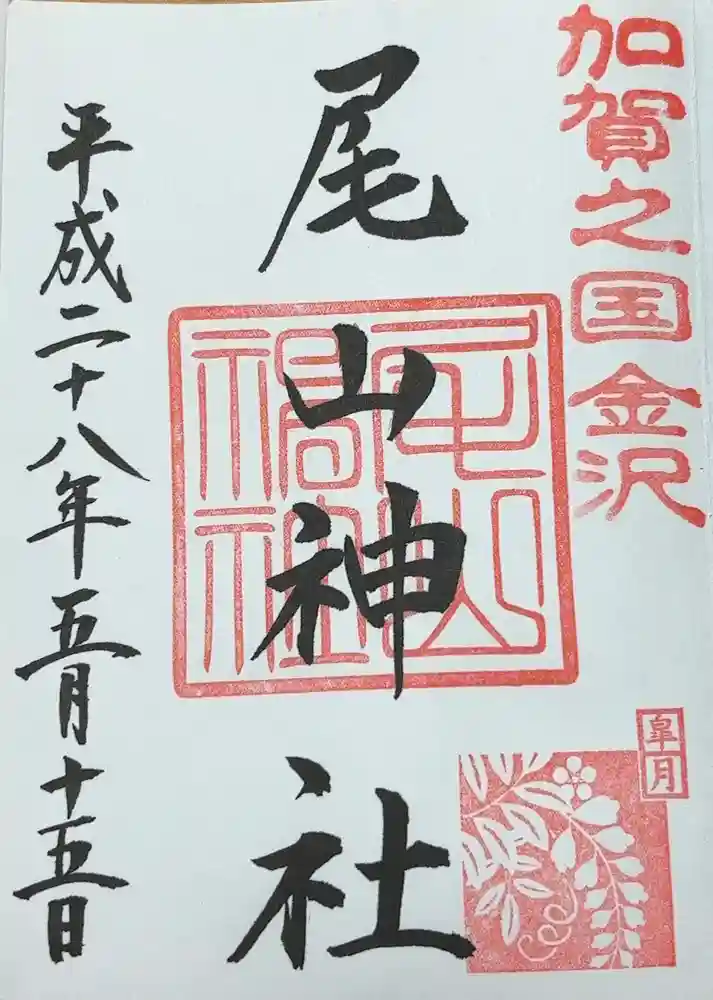 加賀之国金沢
尾山神社
皐月
平成二十八年五月十五日